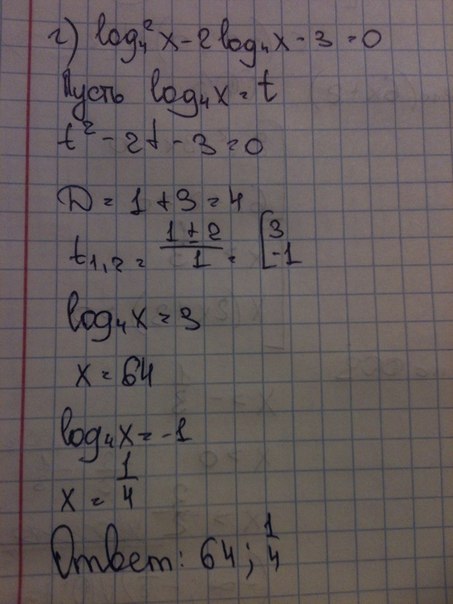 г) log₄²x - 2log₄x - 3 = 0
Пусть log₄x = t
t² - 2t - 3 = 0
D = 1 + 3 = 4
t₁,₂ = (1 ± 2)/1 = [3
-1
log₄x = 3
x = 64
log₄x = -1
x = 1/4
Ответ: 64; 1/4